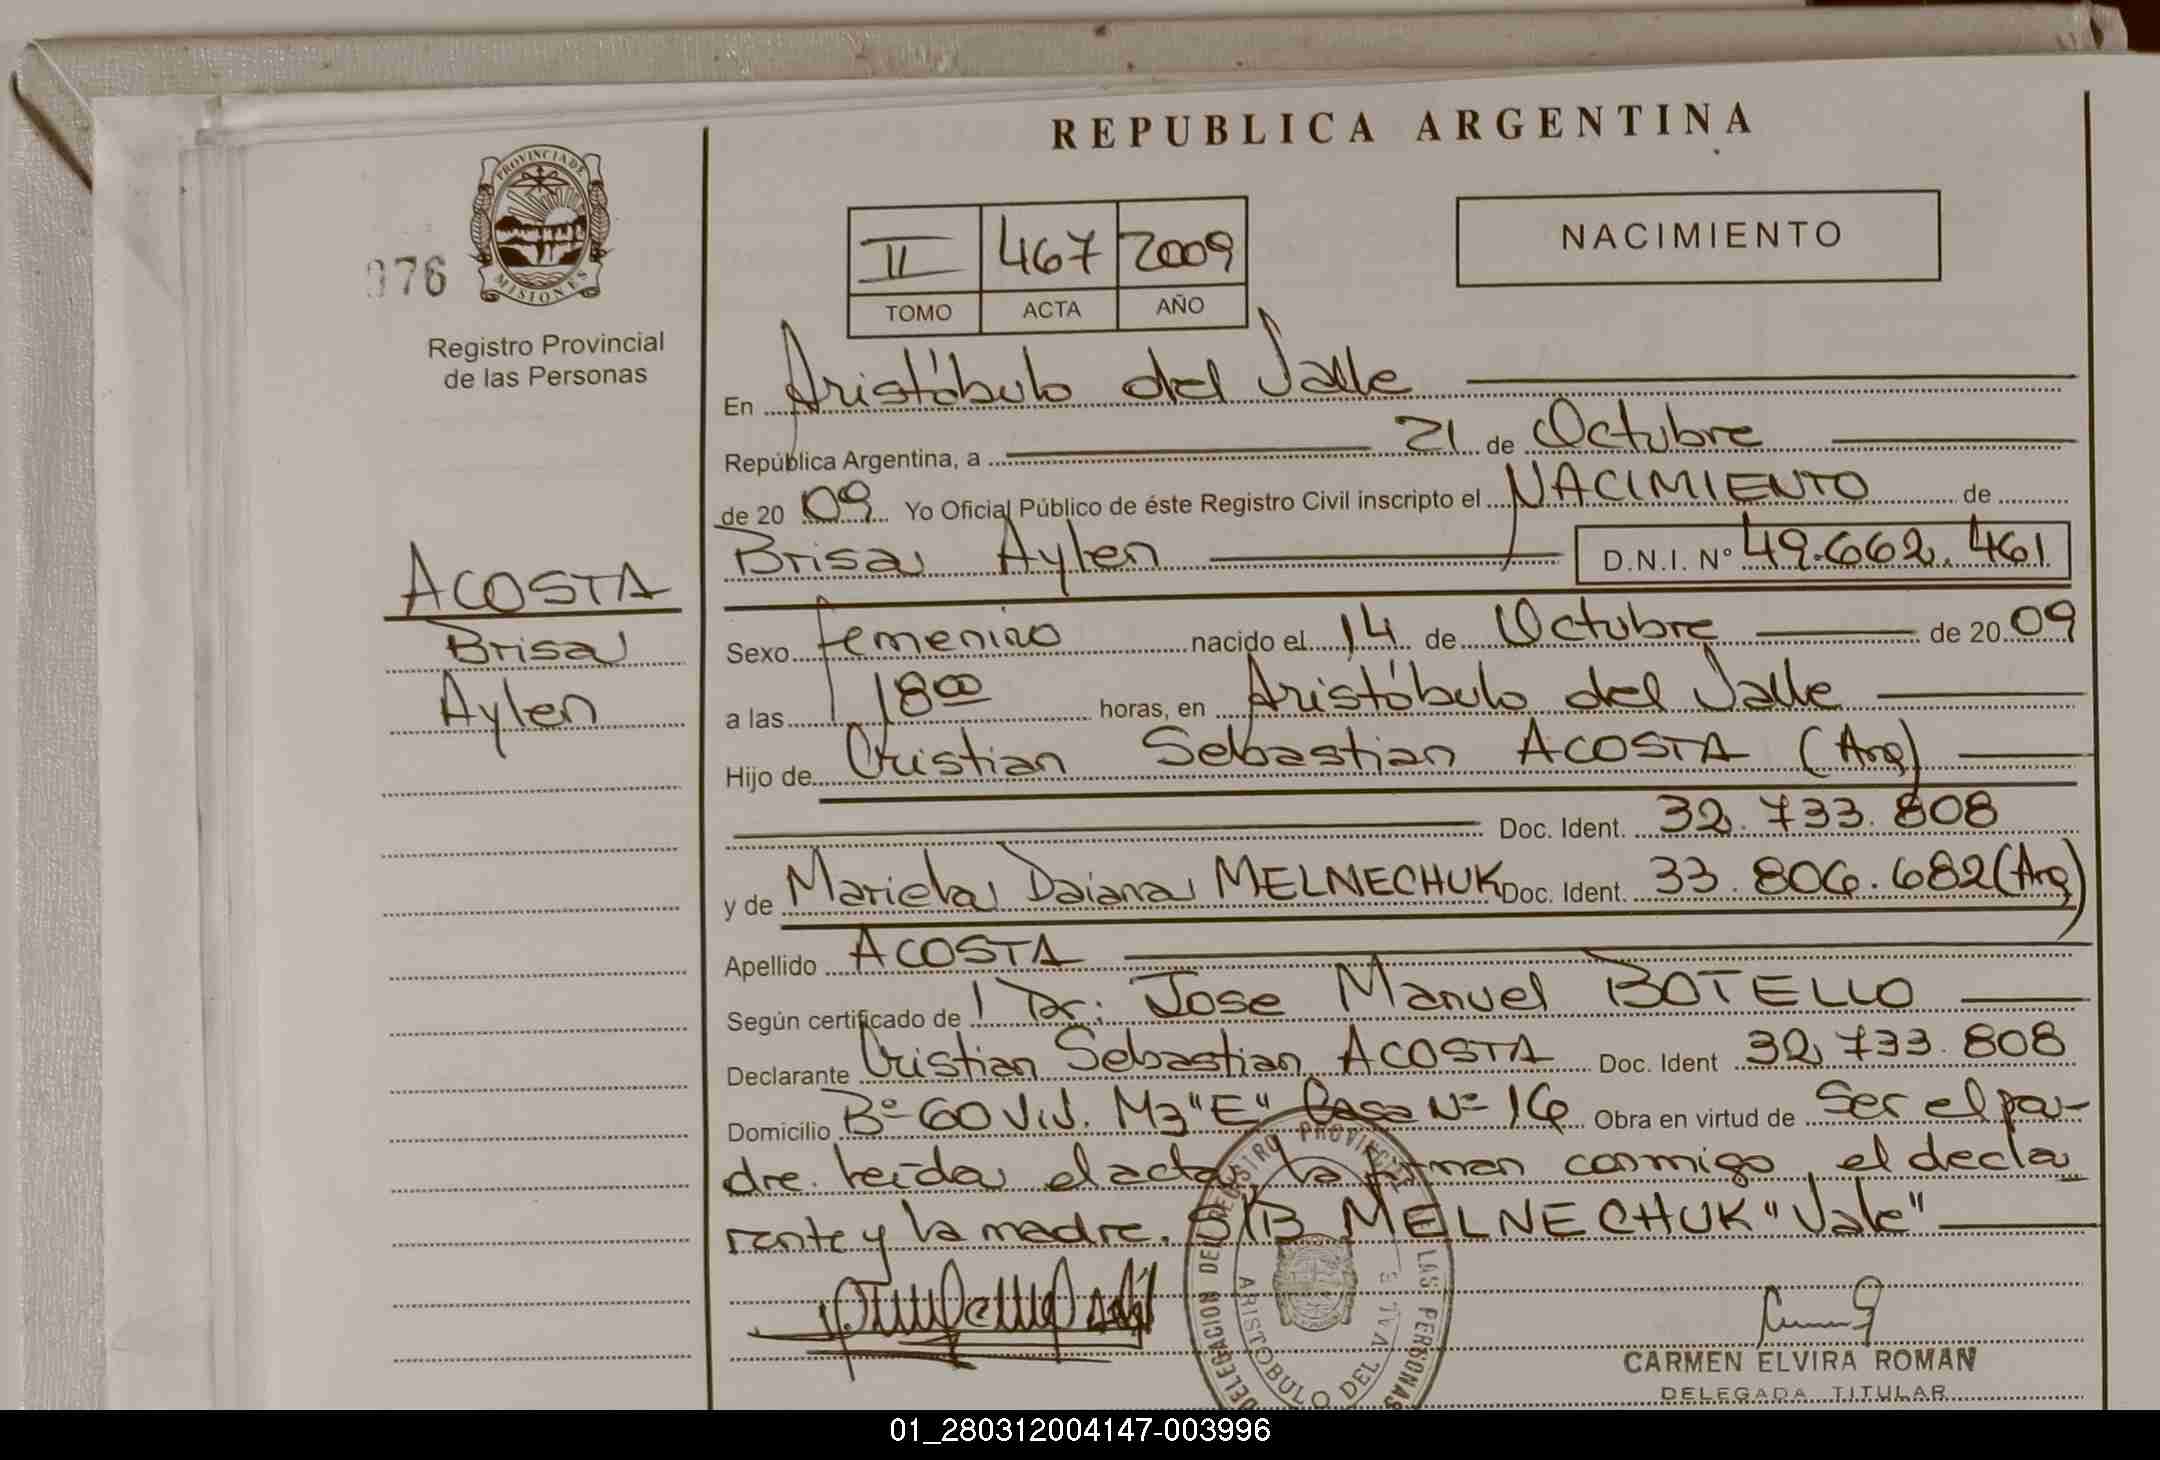 REPUBLICA ARGENTINA
PROVINCIA DE
MISIONES
976
Registro Provincial
de las Personas
II 467 2009
TOMO ACTA AÑO
NACIMIENTO
En Aristóbulo del Valle
República Argentina, a 21 de Octubre
de 2009 Yo Oficial Público de éste Registro Civil inscripto el NACIMIENTO de
Brisa Aylen D.N.I. N° 49.662.461
ACOSTA
Brisa
Aylen
Sexo femenino nacido el 14 de Octubre de 2009
a las 18 00 horas, en Aristóbulo del Valle
Hijo de Cristian Sebastian ACOSTA (Arg)
Doc. Ident. 32.733.808
y de Mariela Daiana MELNECHUK Doc. Ident. 33.806.682 (Arg)
Apellido ACOSTA
Según certificado de Dr: Jose Manuel BOTELLO
Declarante Cristian Sebastian ACOSTA Doc. Ident 32.733.808
Domicilio B° 60 Viv. Mz "E" Casa N° 16 Obra en virtud de Ser el pa-
dre. Leída el acta, la firman conmigo, el decla
rante y la madre. S/B MELNECHUK "Vale"
DELEGACION DEL REGISTRO PROVINCIAL LAS PERSONAS
ARISTOBULO DEL VALLE
CARMEN ELVIRA ROMAN
DELEGADA TITULAR
01_280312004147-003996